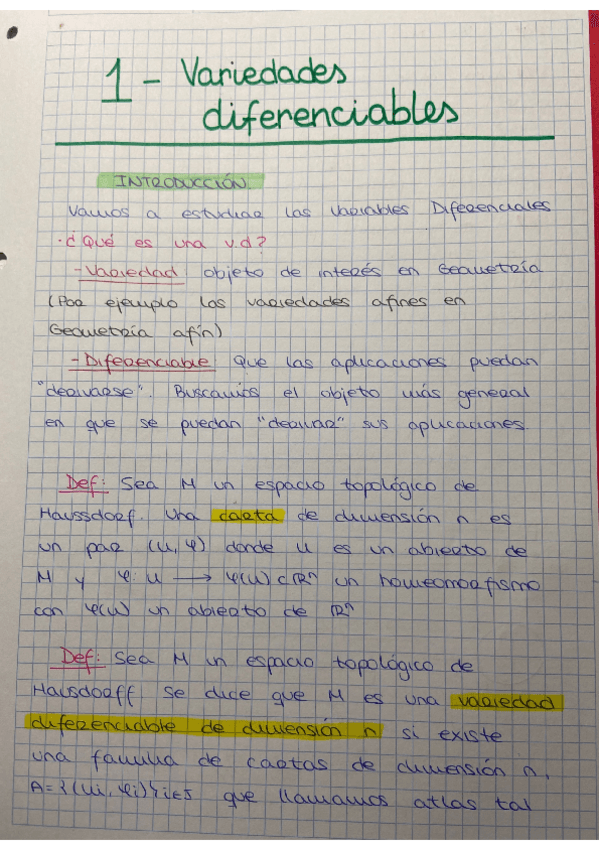 1 - Variedades
diferenciables
INTRODUCCIÓN.
Vamos a estudiar las Variables Diferenciales
· ¿Qué es una v.d?
- Variedad objeto de interés en Geometría
(Por ejemplo las variedades afines en
Geometría afín)
- Diferenciable Que las aplicaciones puedan
"derivarse". Buscamos el objeto más general
en que se puedan "derivar" sus aplicaciones.
Def: Sea M un espacio topológico de
Haussdorf. Una carta de dimensión n es
un par (U, φ) donde U es un abierto de
M y φ: U → φ(U) ⊂ ℝⁿ un homeomorfismo
con φ(U) un abierto de ℝⁿ
Def: Sea M un espacio topológico de
Hausdorff Se dice que M es una variedad
diferenciable de dimensión n si existe
una familia de cartas de dimensión n,
A = {(Ui, φi)}i∈I que llamamos atlas tal